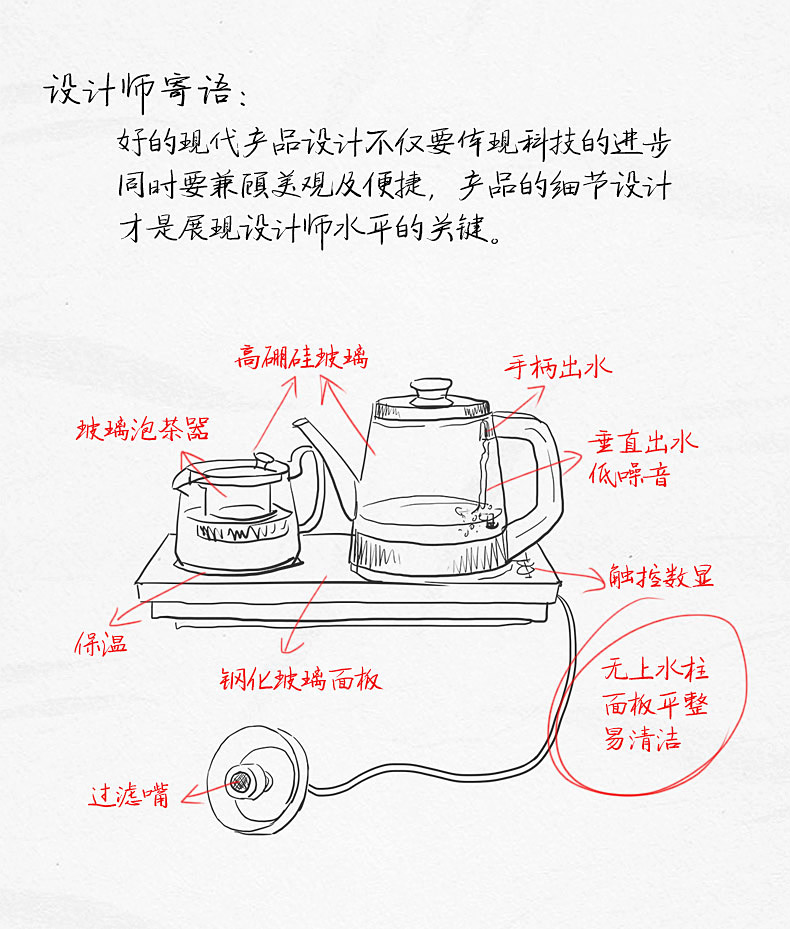 设计师寄语：
好的现代产品设计不仅要体现科技的进步
同时要兼顾美观及便捷，产品的细节设计
才是展现设计师水平的关键。
高硼硅玻璃
手柄出水
玻璃泡茶器
垂直出水
低噪音
触控数显
保温
钢化玻璃面板
无上水柱
面板平整
易清洁
过滤嘴